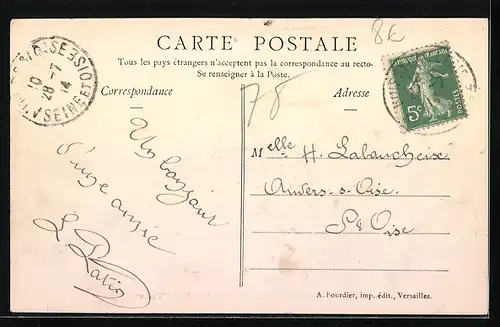 8€
CARTE POSTALE
Tous les pays étrangers n'acceptent pas la correspondance au recto-
Se renseigner à la Poste.
Correspondance
Adresse
78
28 -7
14
SEINE ET OISE
POSTES
5c
Un bonjour
d'une amie
Melle H. Labaucheix
Auvers-s-Oise
S & Oise
A. Bourdier, imp. édit., Versailles.